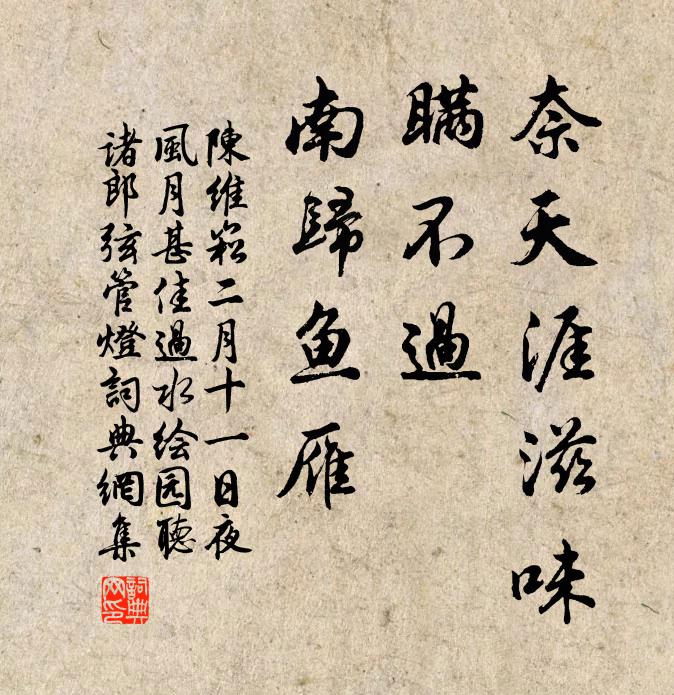 奈天涯滋味
瞞不過
南歸鱼雁
陳維崧二月十一日夜
風月甚佳過水绘园聽
诸郎弦管燈詞典網集
詞典网印